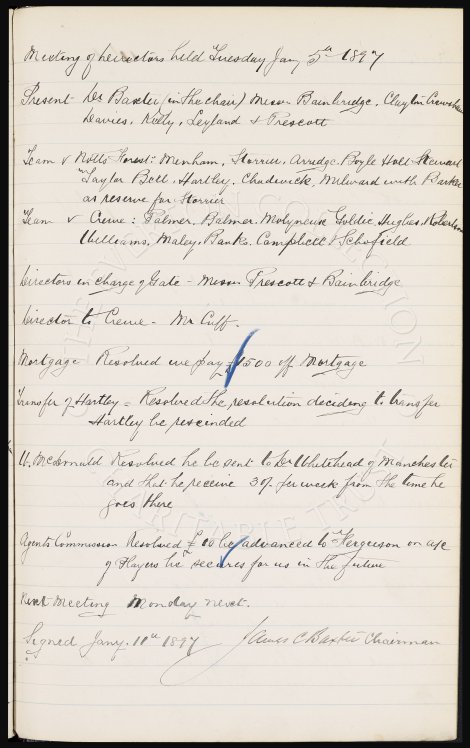 Meeting of Directors held Tuesday Jany 5th 1897
Present - Dr Baxter (in the chair) Messrs Bainbridge, Clayton Crawshaw
Davies, Kelly, Leyland & Prescott
Team v Notts Forest: Menham, Storrier, Arridge, Boyle Holt Stewart
Taylor Bell, Hartley, Chadwick, Milward with Barker
as reserve for Storrier
Team v Crewe: Palmer, Balmer, Molyneux Goldie, Hughes, Robertson
Williams, Maley, Banks, Campbell & Schofield
Directors in charge of Gate - Messrs Prescott & Bainbridge
Director to Crewe - Mr Cuff.
Mortgage Resolved we pay £1500 off Mortgage
Transfer of Hartley = Resolved the resolution deciding to transfer
Hartley be rescinded
McDonald Resolved he be sent to Dr Whitehead of Manchester
and that he receive 30/- per week from the time he
goes there
Agents Commission Resolved £10 be advanced to Ferguson on a/c
of Players he secures for us in the future
Next Meeting Monday next.
Signed Jany. 11th 1897 James C Baxter Chairman
OF